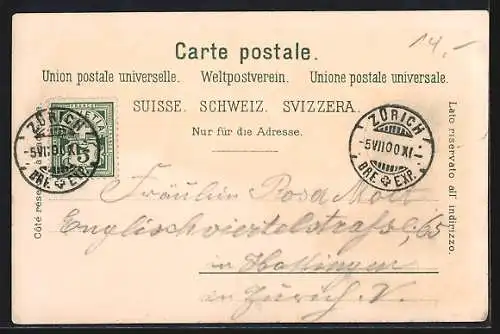 14.-
Carte postale.
Union postale universelle. Weltpostverein. Unione postale universale.
SUISSE. SCHWEIZ. SVIZZERA.
Nur für die Adresse.
Côté rése
Lato riservato all' indirizzo.
HELVETIA
FRANCO
5
ZÜRICH
-5VII00XI-
BRF. EXP.
ZÜRICH
-5VII00XI-
BRF. EXP.
Fräulein Rosa
Englischviertelstraße, 65
in Hottingen
in Zürich V.